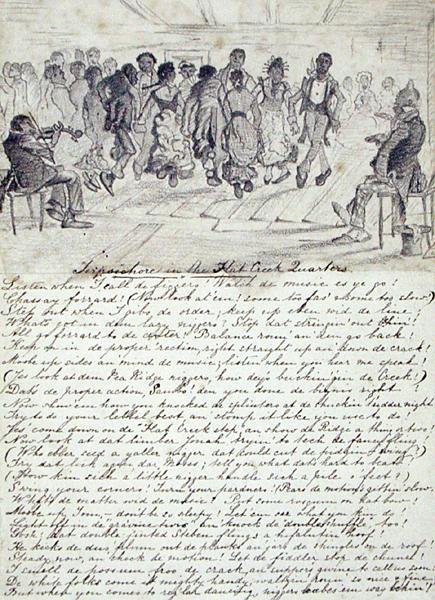 Terpsichore in the Flat Creek Quarters
Listen when I call de figgers! Watch de music es ye go!
Chassay forrard! (Now look at 'em! some too fas' a some too slow!)
Step out when I gibs de order; keep up eben wid de line;
What's got in dem lazy niggers? Stop dat stringin' out behin'!
All go forrard to de center! Balance roun' an den go back!
Keep on in de proper 'rection, right straight up an' down de crack!
Moobe up sides an mind de music; listen when you hear me speak!
(Jes look at dem Pea Ridge niggers, how deys buckin' in de Creek!)
Dat's de proper action, Sambo! den you done de bizness right!
Now show 'em how you knocked de splinters at de shuckin' tudder night
Try to do your lebbel best an stomp it like you use to do
Jes' come down on de "Flat Creek step," an show de Ridge a thing or two!
Now look at dat limber Jonah tryin' to tech de fancy fling!
(Who ebber seed a yaller nigger dat could cut de pidgin-wing?)
Try dat lick again dar Moses; tell you what dat's hard to beat!
(How kin sech a little nigger handle sich a pile o' feet!)
Swing your corners! Turn your pardners! ('Pears de motion's gettin' slow.
What's de matter wid de music? Put some 'em on de bow!
Moobe up Tom— don't be sleepy! Let 'em see what you kin do
Light off in de "gra'vine-twis'" an knock de "double-shuffle", too!
Gosh! dat double-jinted Steben flings a hifalutin hoof
He kicks de dus plum out de planks an jars de shingles on de roof!
Steady, now, an check de motion! Let de fiddler stop de chune!
I smell de possum froo de crack, an supper's gwine to call us soon!
De white folks come it mighty handy, waltzin' roun' so nice & fine
But when you comes to reg'lar dancin', niggers leabes 'em way behin'!